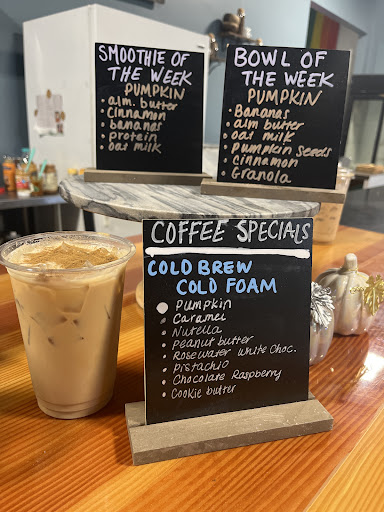 SMOOTHIE OF
THE WEEK
PUMPKIN
• alm. butter
• Cinnamon
• bananas
• protein
• oat milk
BOWL OF
THE WEEK
PUMPKIN
• Bananas
• alm butter
• oat milk
• Pumpkin Seeds
• cinnamon
• Granola
COFFEE SPECIALS
COLD BREW
COLD FOAM
• Pumpkin
• Caramel
• Nutella
• Peanut butter
• Rosewater White Choc.
• Pistachio
• Chocolate Raspberry
• Cookie butter